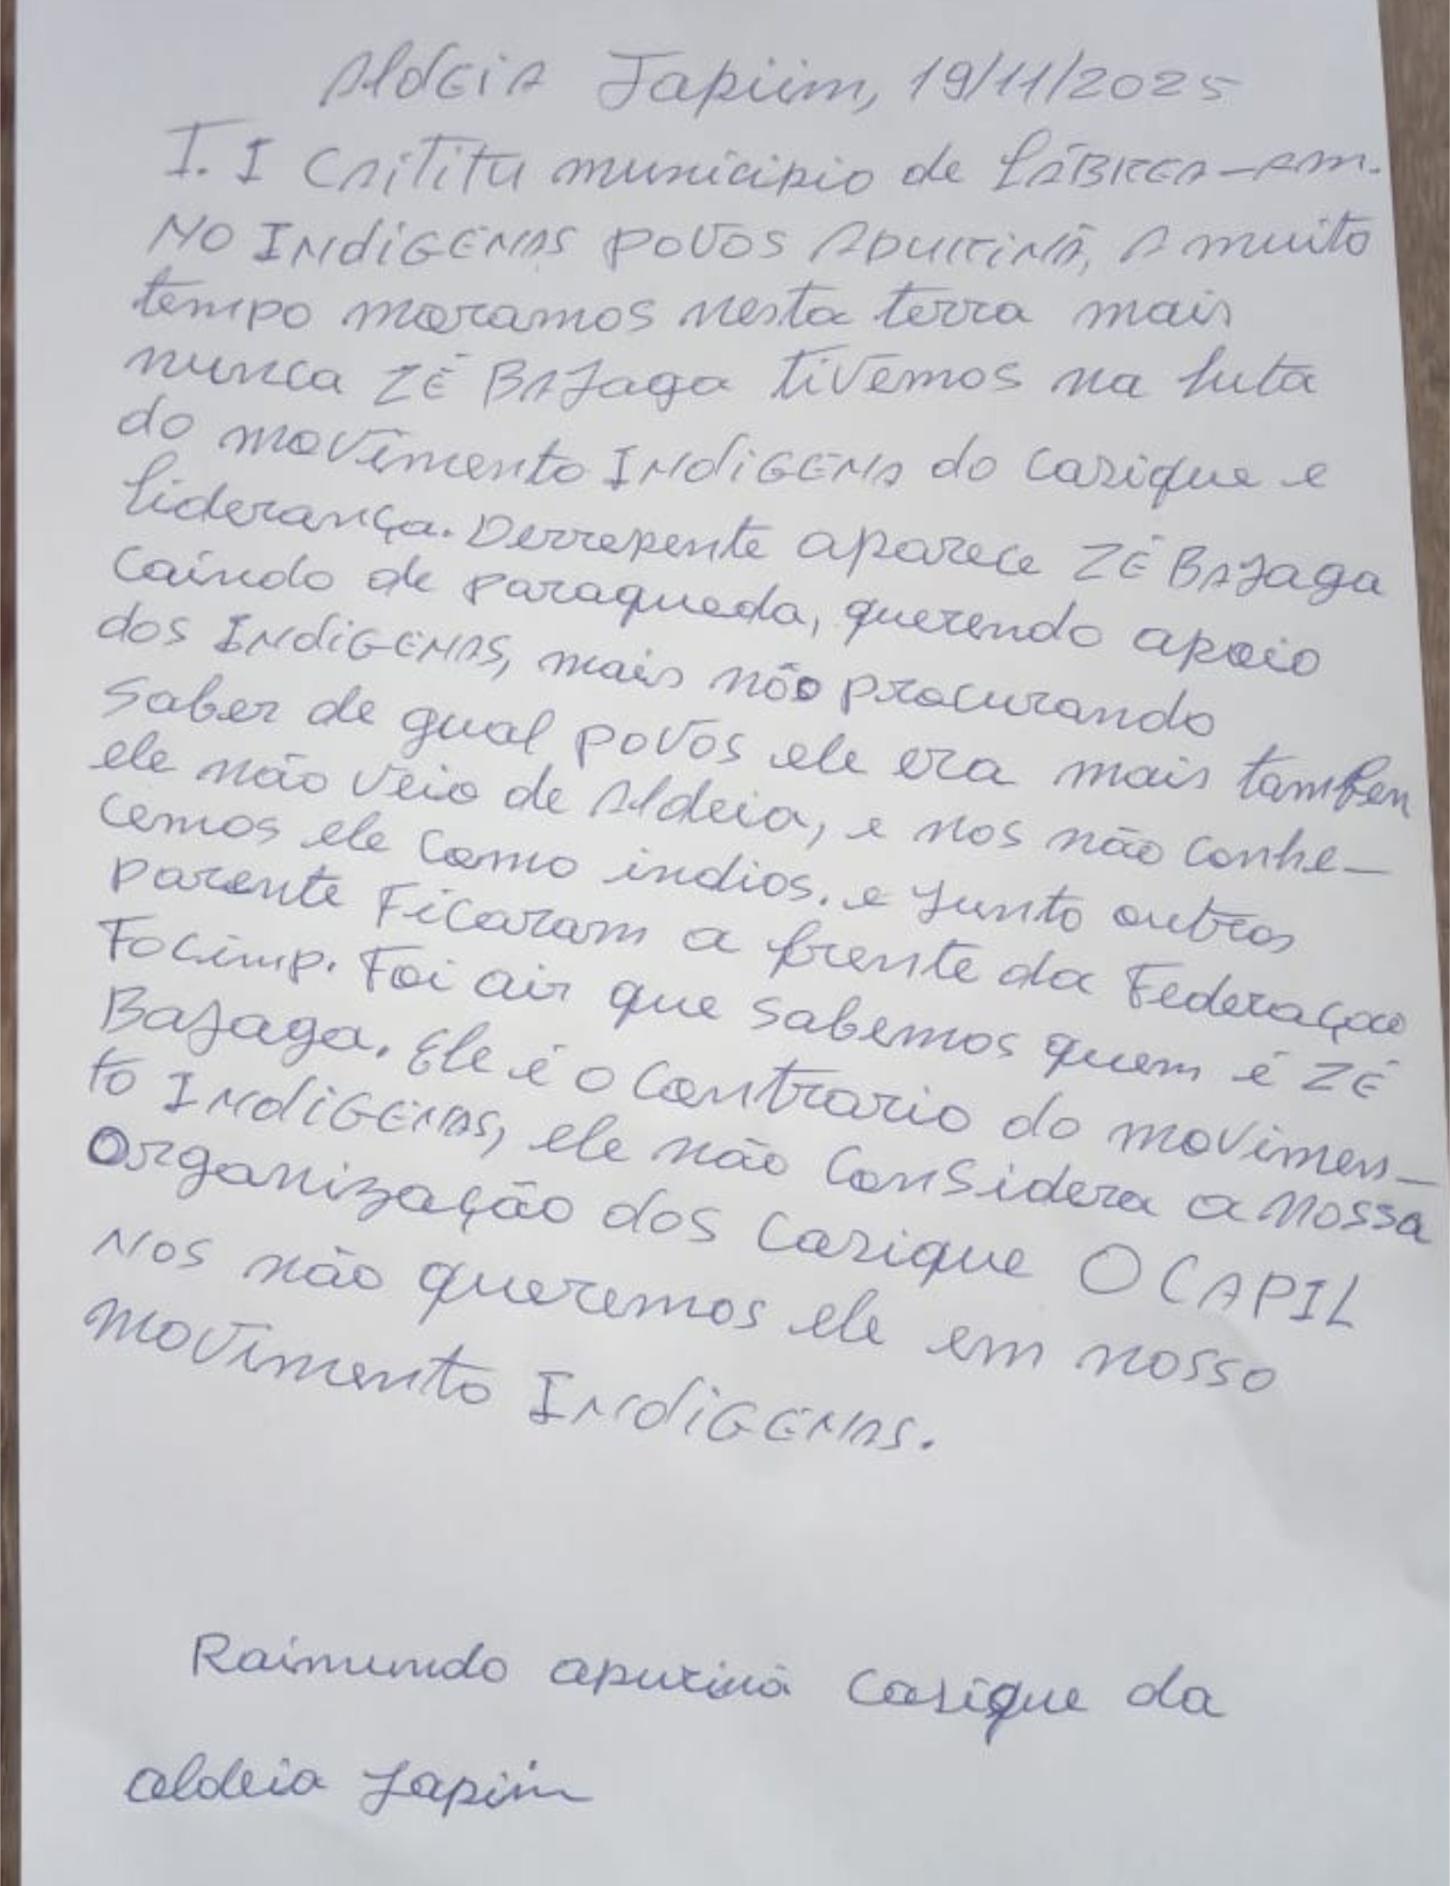 Aldeia Japiim, 19/11/2025
T. I Caititu municipio de LÁBREA-Am.
NO INDIGENAS POVOS APURINÃ, A muito
tempo moramos nesta terra mais
nunca ZÉ BAJaga tivemos na luta
do movimento INDIGENA do casique e
liderança. Derrepente aparece ZÉ BAJaga
Caindo de paraqueda, querendo apoio
dos INDIGENAS, mais não procurando
Saber de qual povos ele era mais tamben
ele não veio de Aldeia, e nos não conhe-
cemos ele como indios. e junto outros
parente Ficaram a frente da Federação
Focimp. Foi air que sabemos quem é ZÉ
Bajaga. Ele é o contrario do movimen-
to INDIGENAS, ele não ConSidera a nossa
Organização dos Casique OCAPIL
Nos não queremos ele em nosso
movimento INDIGENAS.
Raimundo apurinã Casique da
aldeia Japiim